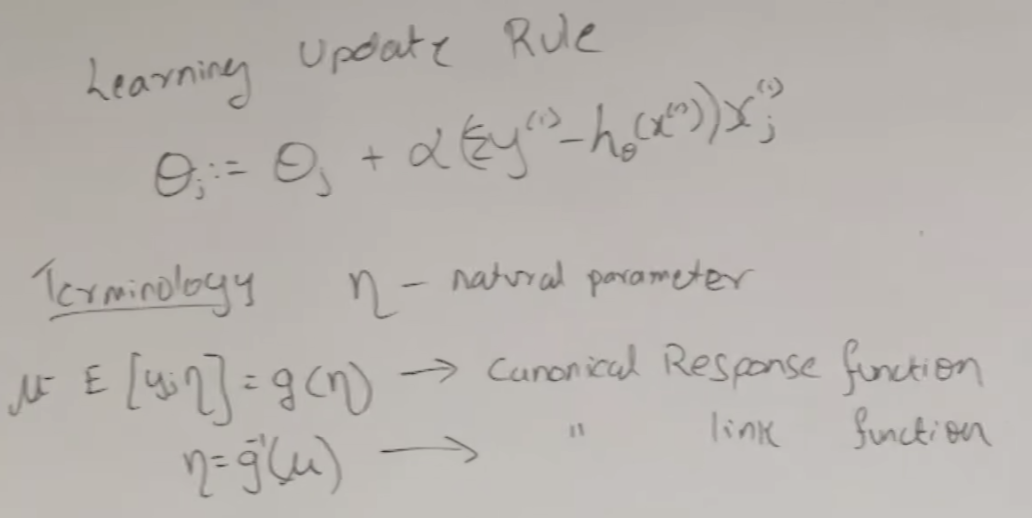 Learning Update Rule
θj := θj + α(Σy⁽ⁱ⁾ - hθ(x⁽ⁱ⁾))xj⁽ⁱ⁾
Terminology η - natural parameter
μ = E[y;η] = g(η) → Canonical Response function
η = g⁻¹(μ) → " link function